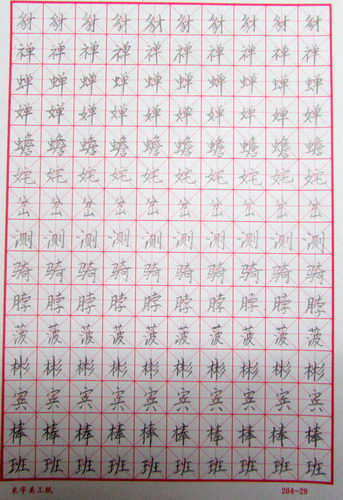 豺豺豺豺豺豺豺豺豺豺
禅禅禅禅禅禅禅禅禅禅
蝉蝉蝉蝉蝉蝉蝉蝉蝉蝉
婵婵婵婵婵婵婵婵婵婵
蟾蟾蟾蟾蟾蟾蟾蟾蟾蟾
姹姹姹姹姹姹姹姹姹姹
岔岔岔岔岔岔岔岔岔岔
测测测测测测测测测测
骑骑骑骑骑骑骑骑骑骑
脖脖脖脖脖脖脖脖脖脖
菠菠菠菠菠菠菠菠菠菠
彬彬彬彬彬彬彬彬彬彬
宾宾宾宾宾宾宾宾宾宾
棒棒棒棒棒棒棒棒棒棒
班班班班班班班班班班
米字美工纸 204-29